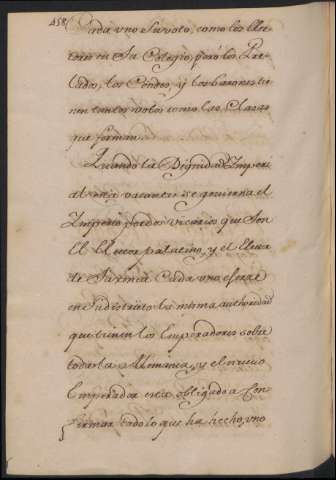 458
cada vno Su voto, como los Elec
tores en Su Colegio, pero los Pre
lados, los Condes, y los barones tie
nen tantos votos como las Clases
que forman.
Quando la Dignidad Imperi
al està vacante se govierna el
Imperio por dos vicarios que Son
El Elector palatino, y el Elector
de Saxonia Cada vno
en Su distrito la misma authoridad
que tienen los Emperadores sobre
toda la Alemania, y el nuevo
Emperador està obligado a Con
firmar todo lo que ha hecho, vno